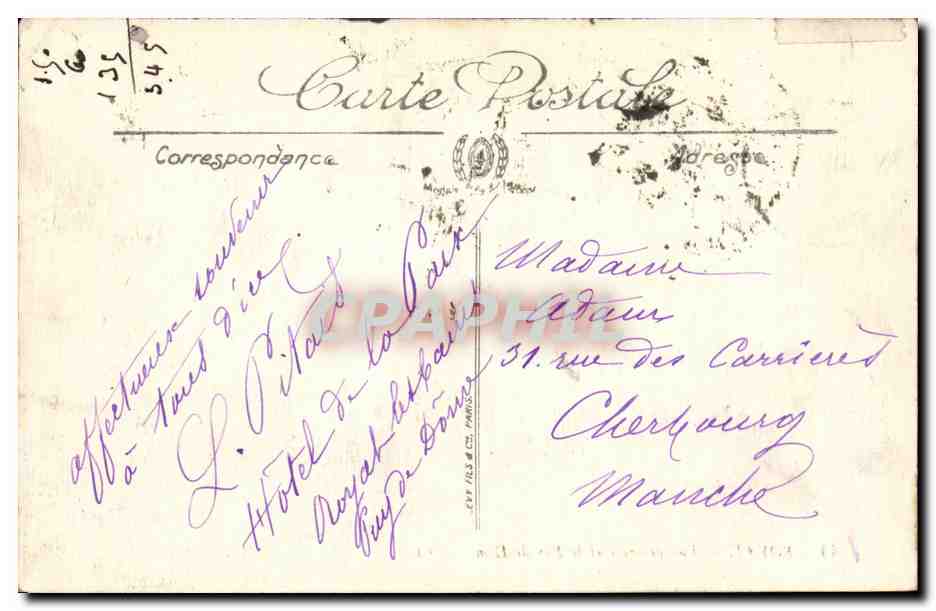 1.5.
6
1 35
5.45
Carte Postale
Correspondance
Adresse
affectueux souvenir
à tous d'ici
L. Pitard
Hôtel de la Paix
Royat les bains
Puy de Dôme
LEVY FILS & Cie, PARIS.
Madame
Adam
31. rue des Carrières
Cherbourg
Manche
CPAPHIL